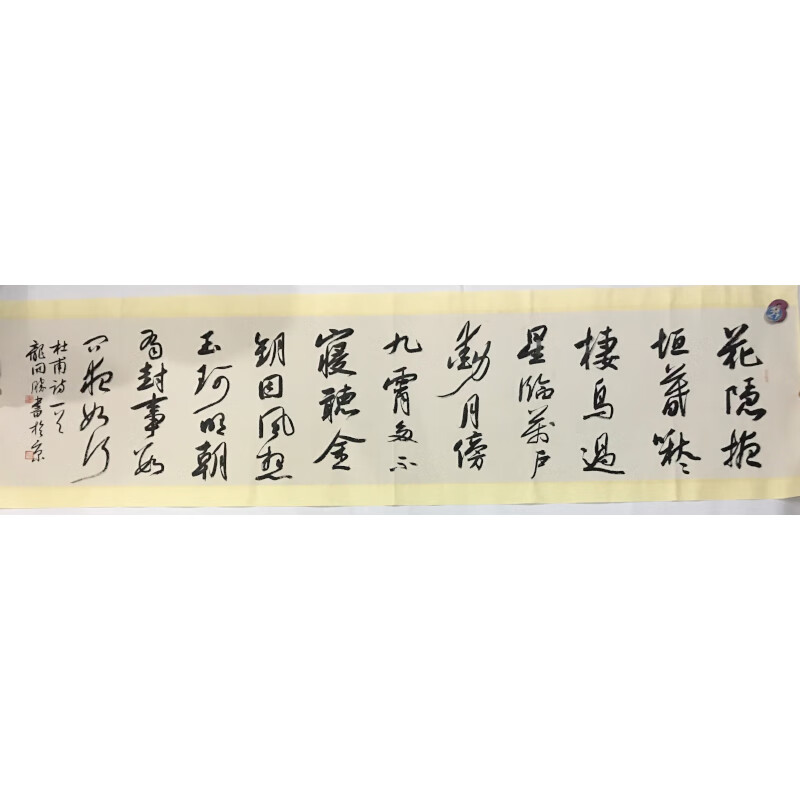 花隱掖
垣暮啾々
棲鳥過
星臨萬戶
動月傍
九霄多不
寢聽金
鈅因風想
玉珂明朝
有封事數
問夜如何
杜甫詩一首
龍開勝書於京